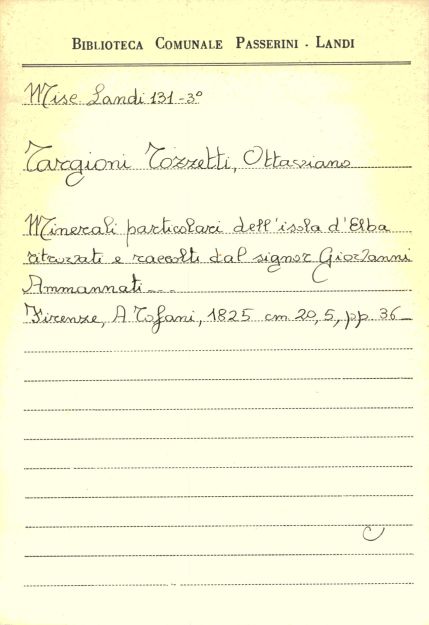 BIBLIOTECA COMUNALE PASSERINI - LANDI
Misc. Landi 131-3º
Targioni Tozzetti, Ottaviano
Minerali particolari dell'isola d'Elba
ritrovati e raccolti dal signor Giovanni
Ammannati...
Firenze, A Tofani, 1825 cm 20,5, pp. 36